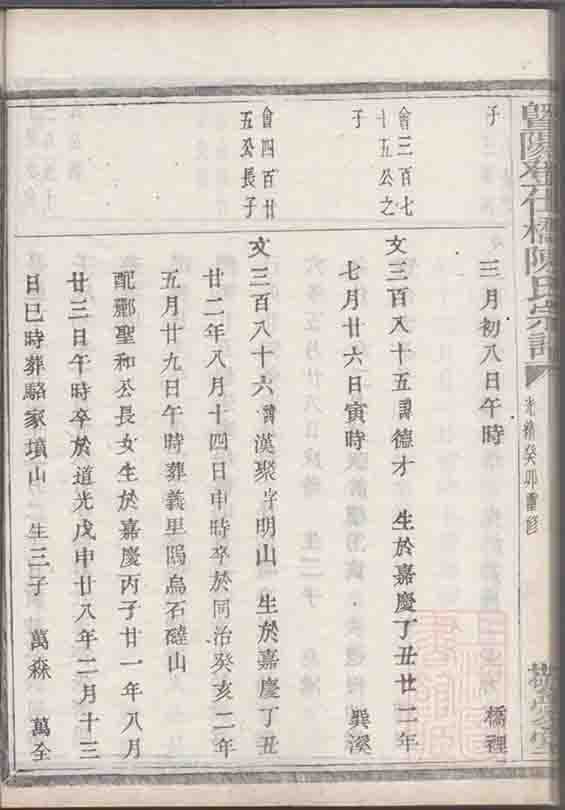 暨陽邊在橋陳氏宗譜
光緒癸卯重修
敬愛堂
子
三月初八日午時
橋裡
會三百七
十五公之
子
文三百八十五諱德才 生於嘉慶丁丑廿二年
七月廿六日寅時 巽溪
會四百廿
五公長子
文三百八十六諱漢聚字明山 生於嘉慶丁丑
廿二年八月十四日申時卒於同治癸亥二年
五月廿九日午時葬義里塢烏石磋山
配酈聖和公長女生於嘉慶丙子廿一年八月
廿三日午時卒於道光戊申廿八年二月十三
日巳時葬駱家墳山 生三子 萬森 萬全